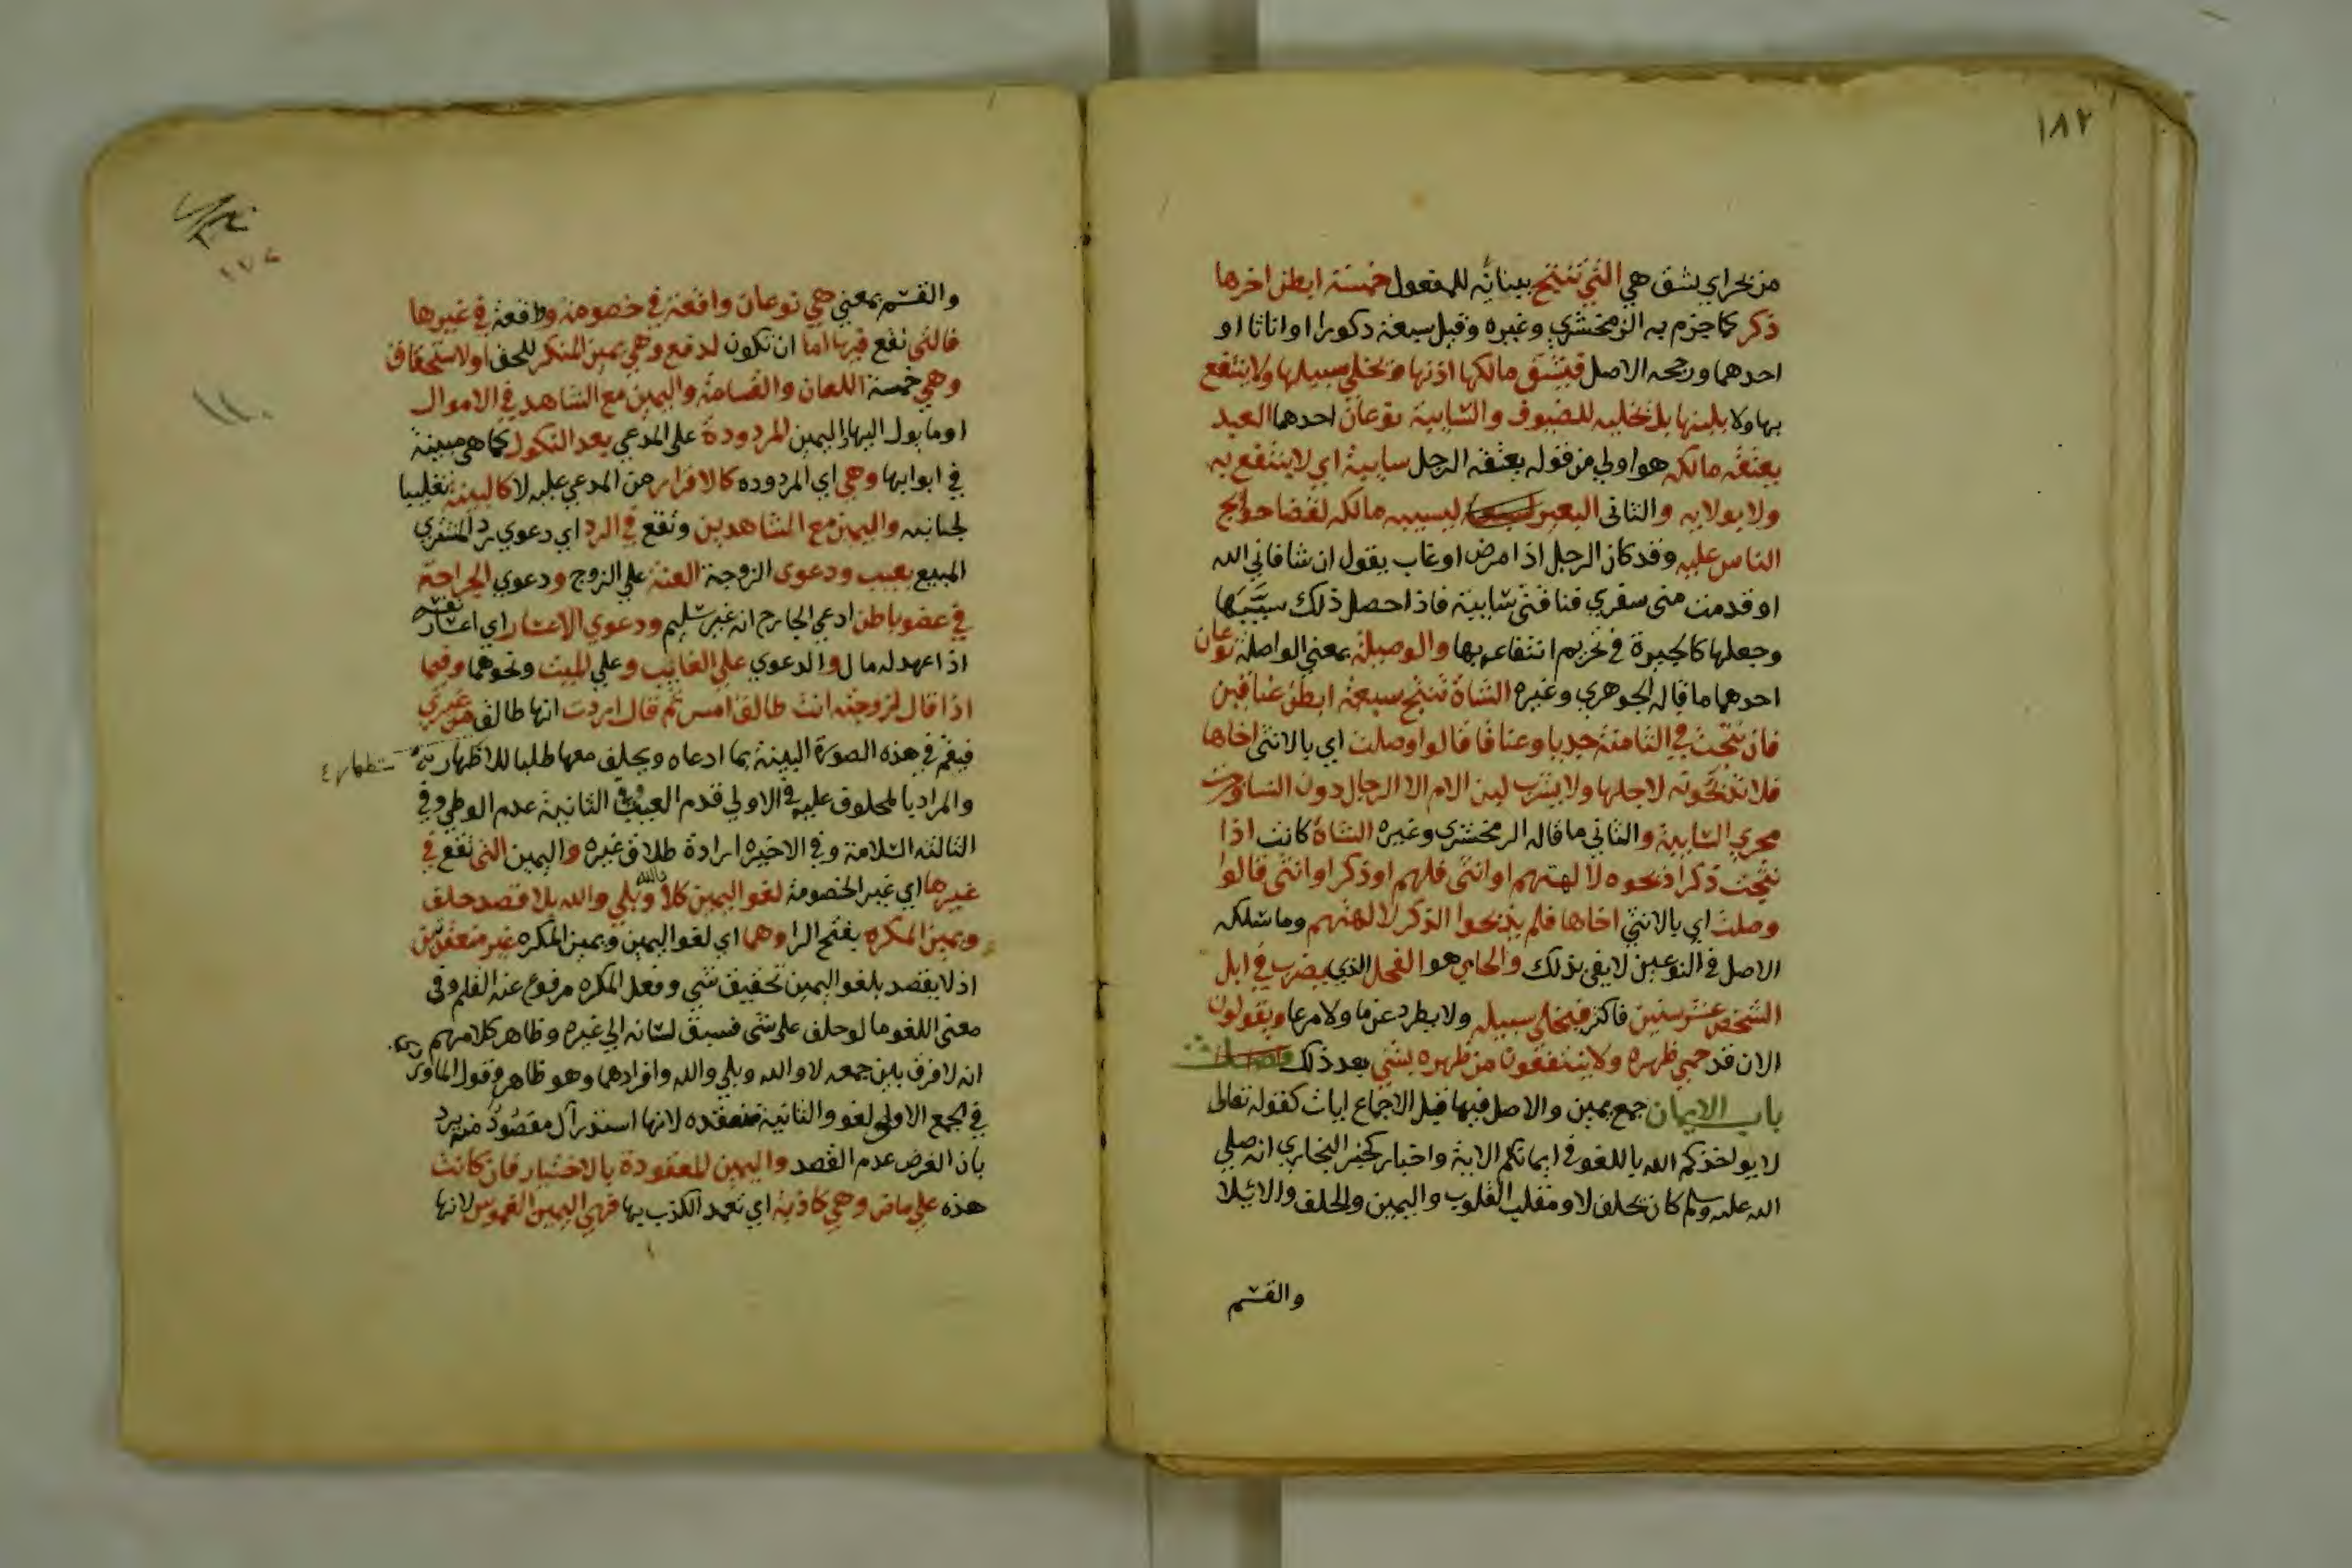 ١٨٢
من بحر اي شق هي التي تنتج ببنائه للمفعول خمسة ابطن اخرها
ذكر كما جزم به الزمخشري وغيره وقيل سبعة ذكورا او اناثا او
احدهما ورجحه الاصل فيشق مالكها اذنها ويخلي سبيلها ولا ينتفع
بها ولا بلبنها بل يخليه للضيوف والسايبة نوعان احدهما العبد
يعتقه مالكه هو اولي من قوله يعتقه الرجل سايبة اي لا ينتفع به
ولا بولايه والثاني البعير يسيبه مالكه لقضا حوايج
الناس عليه وقد كان الرجل اذا مرض او غاب يقول ان شفاني الله
او قدمت من سفري فناقتي سايبة فاذا حصل ذلك سيبها
وجعلها كالبحيرة في تحريم انتفاعه بها والوصيلة بمعني الواصلة نوعان
احدهما ما قاله الجوهري وغيره الشاة تنتج سبعة ابطن عناقين
فان نتجت في الثامنة جديا وعناقا قالوا وصلت اي بالانثي اخاها
فلا يذبحونه لاجلها ولا يشرب لبن الام الا الرجال دون النسا وجرت
مجري السايبة والثاني ما قاله الزمخشري وغيره الشاة كانت اذا
نتجت ذكرا ذبحوه لالهتهم او انثي فلهم او ذكرا وانثي قالوا
وصلت اي بالانثي اخاها فلم يذبحوا الذكر لالهتهم وما سلكه
الاصل في النوعين لا يفي بذلك والحامي هو الفحل الذي يضرب في ابل
الشخص عشر سنين فاكثر فيخلي سبيله ولا يطرد عن ما ولا مرعا ويقولون
الان قد حمي ظهره ولا ينتفعون من ظهره بشي بعد ذلك
باب الايمان جمع يمين والاصل فيها قبل الاجماع ايات كقوله تعالي
لا يواخذكم الله باللغو في ايمانكم الاية واخبار كخبر البخاري انه صلي
الله عليه وسلم كان يحلف لا ومقلب القلوب واليمين والحلف والايلا
والقسم
١٧٤
والقسم بمعني هي نوعان واقعة في خصومة وواقعة في غيرها
فالتي تقع فيها اما ان تكون لدفع وهي يمين المنكر للحق او لاستحقاق
وهي خمسة اللعان والقسامة واليمين مع الشاهد في الاموال
او ما يول اليها واليمين المردودة علي المدعي بعد النكول كما هي مبينة
في ابوابها وهي اي المردوده كالاقرار من المدعي عليه لا كالبينة تغليبا
لجنابته واليمين مع الشاهدين وتقع في الرد اي دعوي رد المشتري
المبيع بعيب ودعوي الزوجة العنة علي الزوج ودعوي الجراحة
في عضو باطن ادعي الجارح انه غير سليم ودعوي الاعسار اي اعسار نفسه
اذا عهد له مال والدعوي علي الغايب وعلي الميت ونحوهما وفيما
اذا قال لزوجته انت طالق امس ثم قال اردت انها طالق من غيري
فيقم في هذه الصورة البينة بما ادعاه ويحلف معها طلبا للاظهار
والمراد بالمحلوف عليه في الاولي قدم العيب وفي الثانية عدم الوطي وفي
الثالثة السلامة وفي الاخيره ارادة طلاق غيره واليمين التي تقع في
غيرها اي غير الخصومة لغو اليمين كلا والله وبلي والله بلا قصد حلف
ويمين المكره بفتح الرا وهما اي لغو اليمين ويمين المكره غير منعقدتين
اذ لا يقصد بلغو اليمين تحقيق شي وفعل المكره مرفوع عنه القلم وفي
معني اللغو ما لو حلف علي شي فسبق لسانه الي غيره وظاهر كلامهم
انه لا فرق بين جمعه لا والله وبلي والله وافرادهما وهو ظاهر وقول الماوردي
في الجمع الاولي لغو والثانية منعقده لانها استدراك مقصود منه يرد
بان الفرض عدم القصد واليمين المعقودة بالاختيار فان كانت
هذه علي ماض وهي كاذبة اي تعمد الكذب بها فهي اليمين الغموس لانها